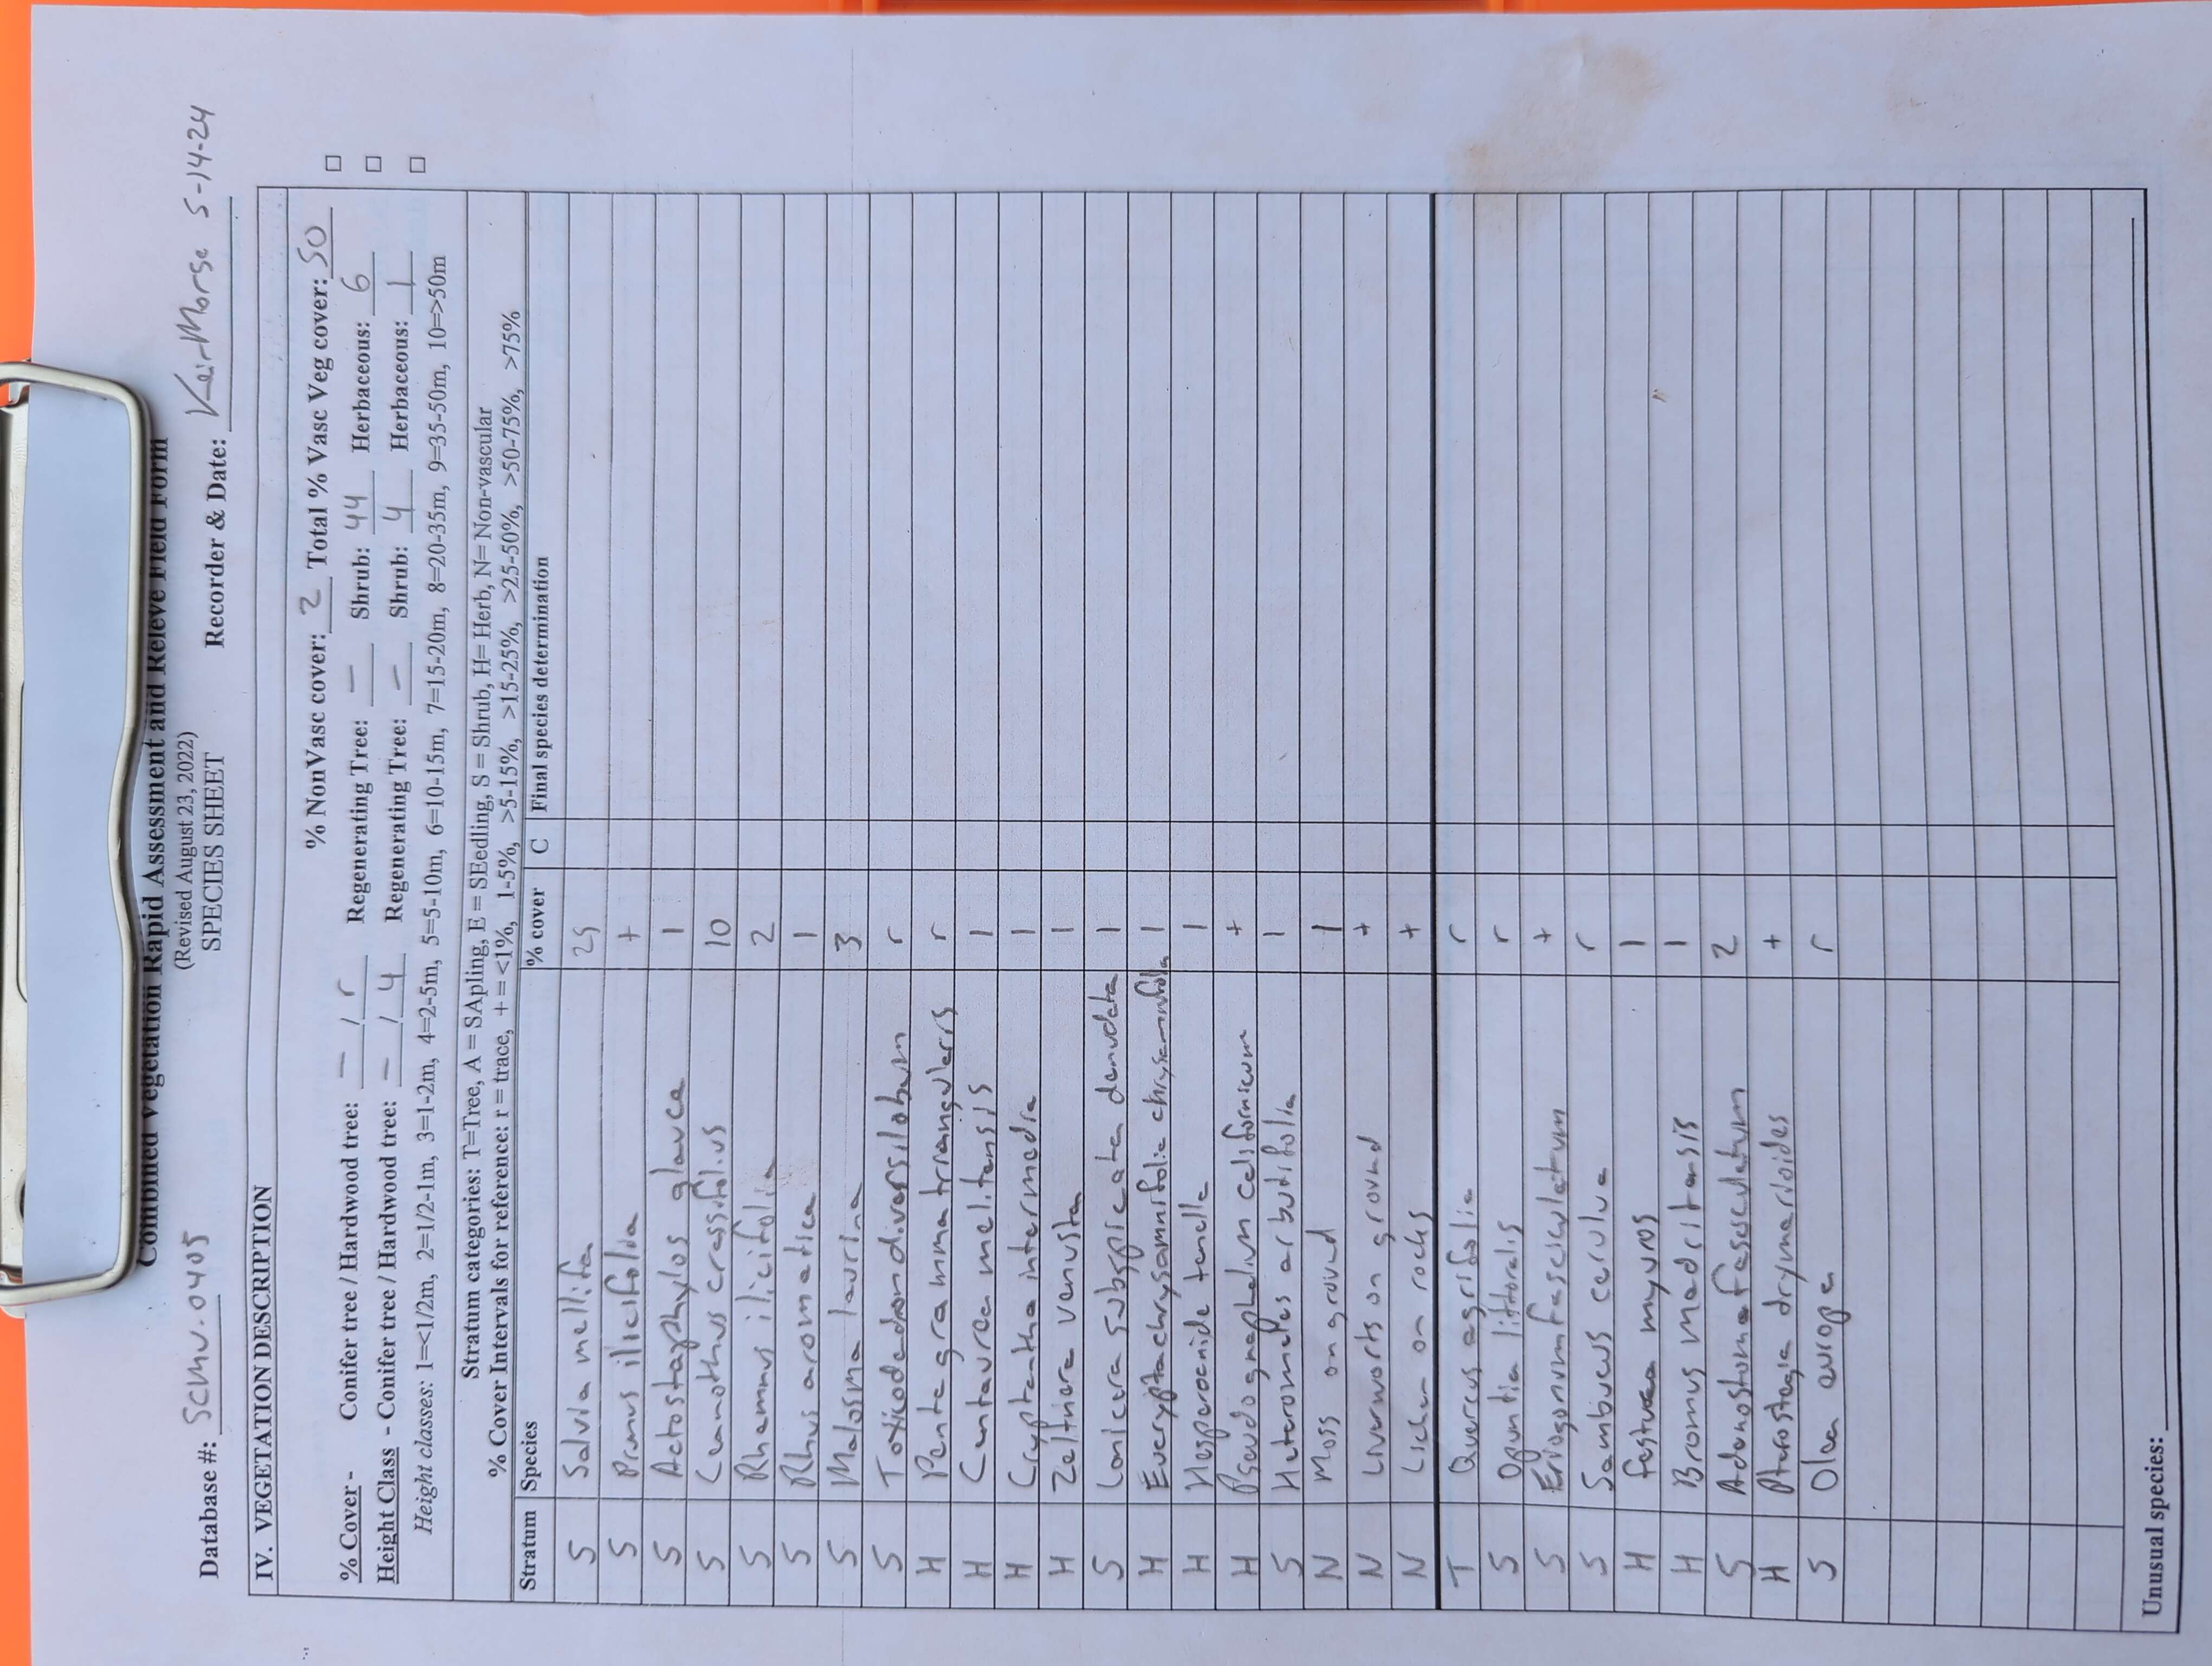 Combined Vegetation Rapid Assessment and Relevé Field Form
(Revised August 23, 2022)
Database #: SCMU.0405 SPECIES SHEET Recorder & Date: Keir Morse 5-14-24
IV. VEGETATION DESCRIPTION
% NonVasc cover: 2 Total % Vasc Veg cover: 50
% Cover - Conifer tree / Hardwood tree: — / r Regenerating Tree: — Shrub: 44 Herbaceous: 6
Height Class - Conifer tree / Hardwood tree: — / 4 Regenerating Tree: — Shrub: 4 Herbaceous: 1
Height classes: 1=<1/2m, 2=1/2-1m, 3=1-2m, 4=2-5m, 5=5-10m, 6=10-15m, 7=15-20m, 8=20-35m, 9=35-50m, 10=>50m
Stratum categories: T=Tree, A = SApling, E = SEedling, S = Shrub, H= Herb, N= Non-vascular
% Cover Intervals for reference: r = trace, + = <1%, 1-5%, >5-15%, >15-25%, >25-50%, >50-75%, >75%
Stratum Species % cover C Final species determination
S Salvia mellifera 25
S Prunus ilicifolia +
S Arctostaphylos glauca 1
S Ceanothus crassifolius 10
S Rhamnus ilicifolia 2
S Rhus aromatica 1
S Malosma laurina 3
S Toxicodendron diversilobum r
H Pentagramma triangularis r
H Centaurea melitensis 1
H Cryptantha intermedia 1
H Zeltnera venusta 1
S Lonicera subspicata denudata 1
H Eucrypta chrysanmifolia chrysanmifolia 1
H Hesperocnide tenella 1
H Pseudognaphalium californicum +
S Heteromeles arbutifolia 1
N Moss on ground 1
N Liverworts on ground +
N Lichen on rocks +
T Quercus agrifolia r
S Opuntia littoralis r
S Eriogonum fasciculatum +
S Sambucus cerulea r
H festuca myuros 1
H Bromus madritensis 1
S Adenostoma fasciculatum 2
H Pterostegia drymarioides +
S Olea europea r
Unusual species: